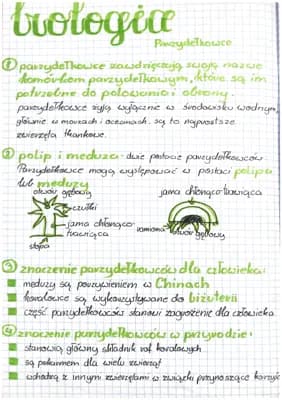 biologia
Parzydełkowce
① parzydełkowce zawdzięczają swoją nazwę
komórkom parzydełkowym, które są im
potrzebne do polowania i obrony.
parzydełkowce żyją wyłącznie w środowisku wodnym,
głównie w morzach i oceanach. są to najprostsze
zwierzęta tkankowe.
② polip i meduza - dwie postacie parzydełkowców
Parzydełkowce mogą występować w postaci polipa
lub meduzy
otwór gębowy
jama chłonąco-trawiąca
czułki
jama chłonąco-
trawiąca
ramiona
otwór gębowy
stopa
③ znaczenie parzydełkowców dla człowieka:
meduzy są pożywieniem w Chinach
koralowce są wykorzystywane do biżuterii
część parzydełkowców stanowi zagrożenie dla człowieka
④ znaczenie parzydełkowców w przyrodzie:
stanowią główny składnik raf koralowych
są pokarmem dla wielu zwierząt
wchodzą z innymi zwierzętami w związki przynoszące korzyść